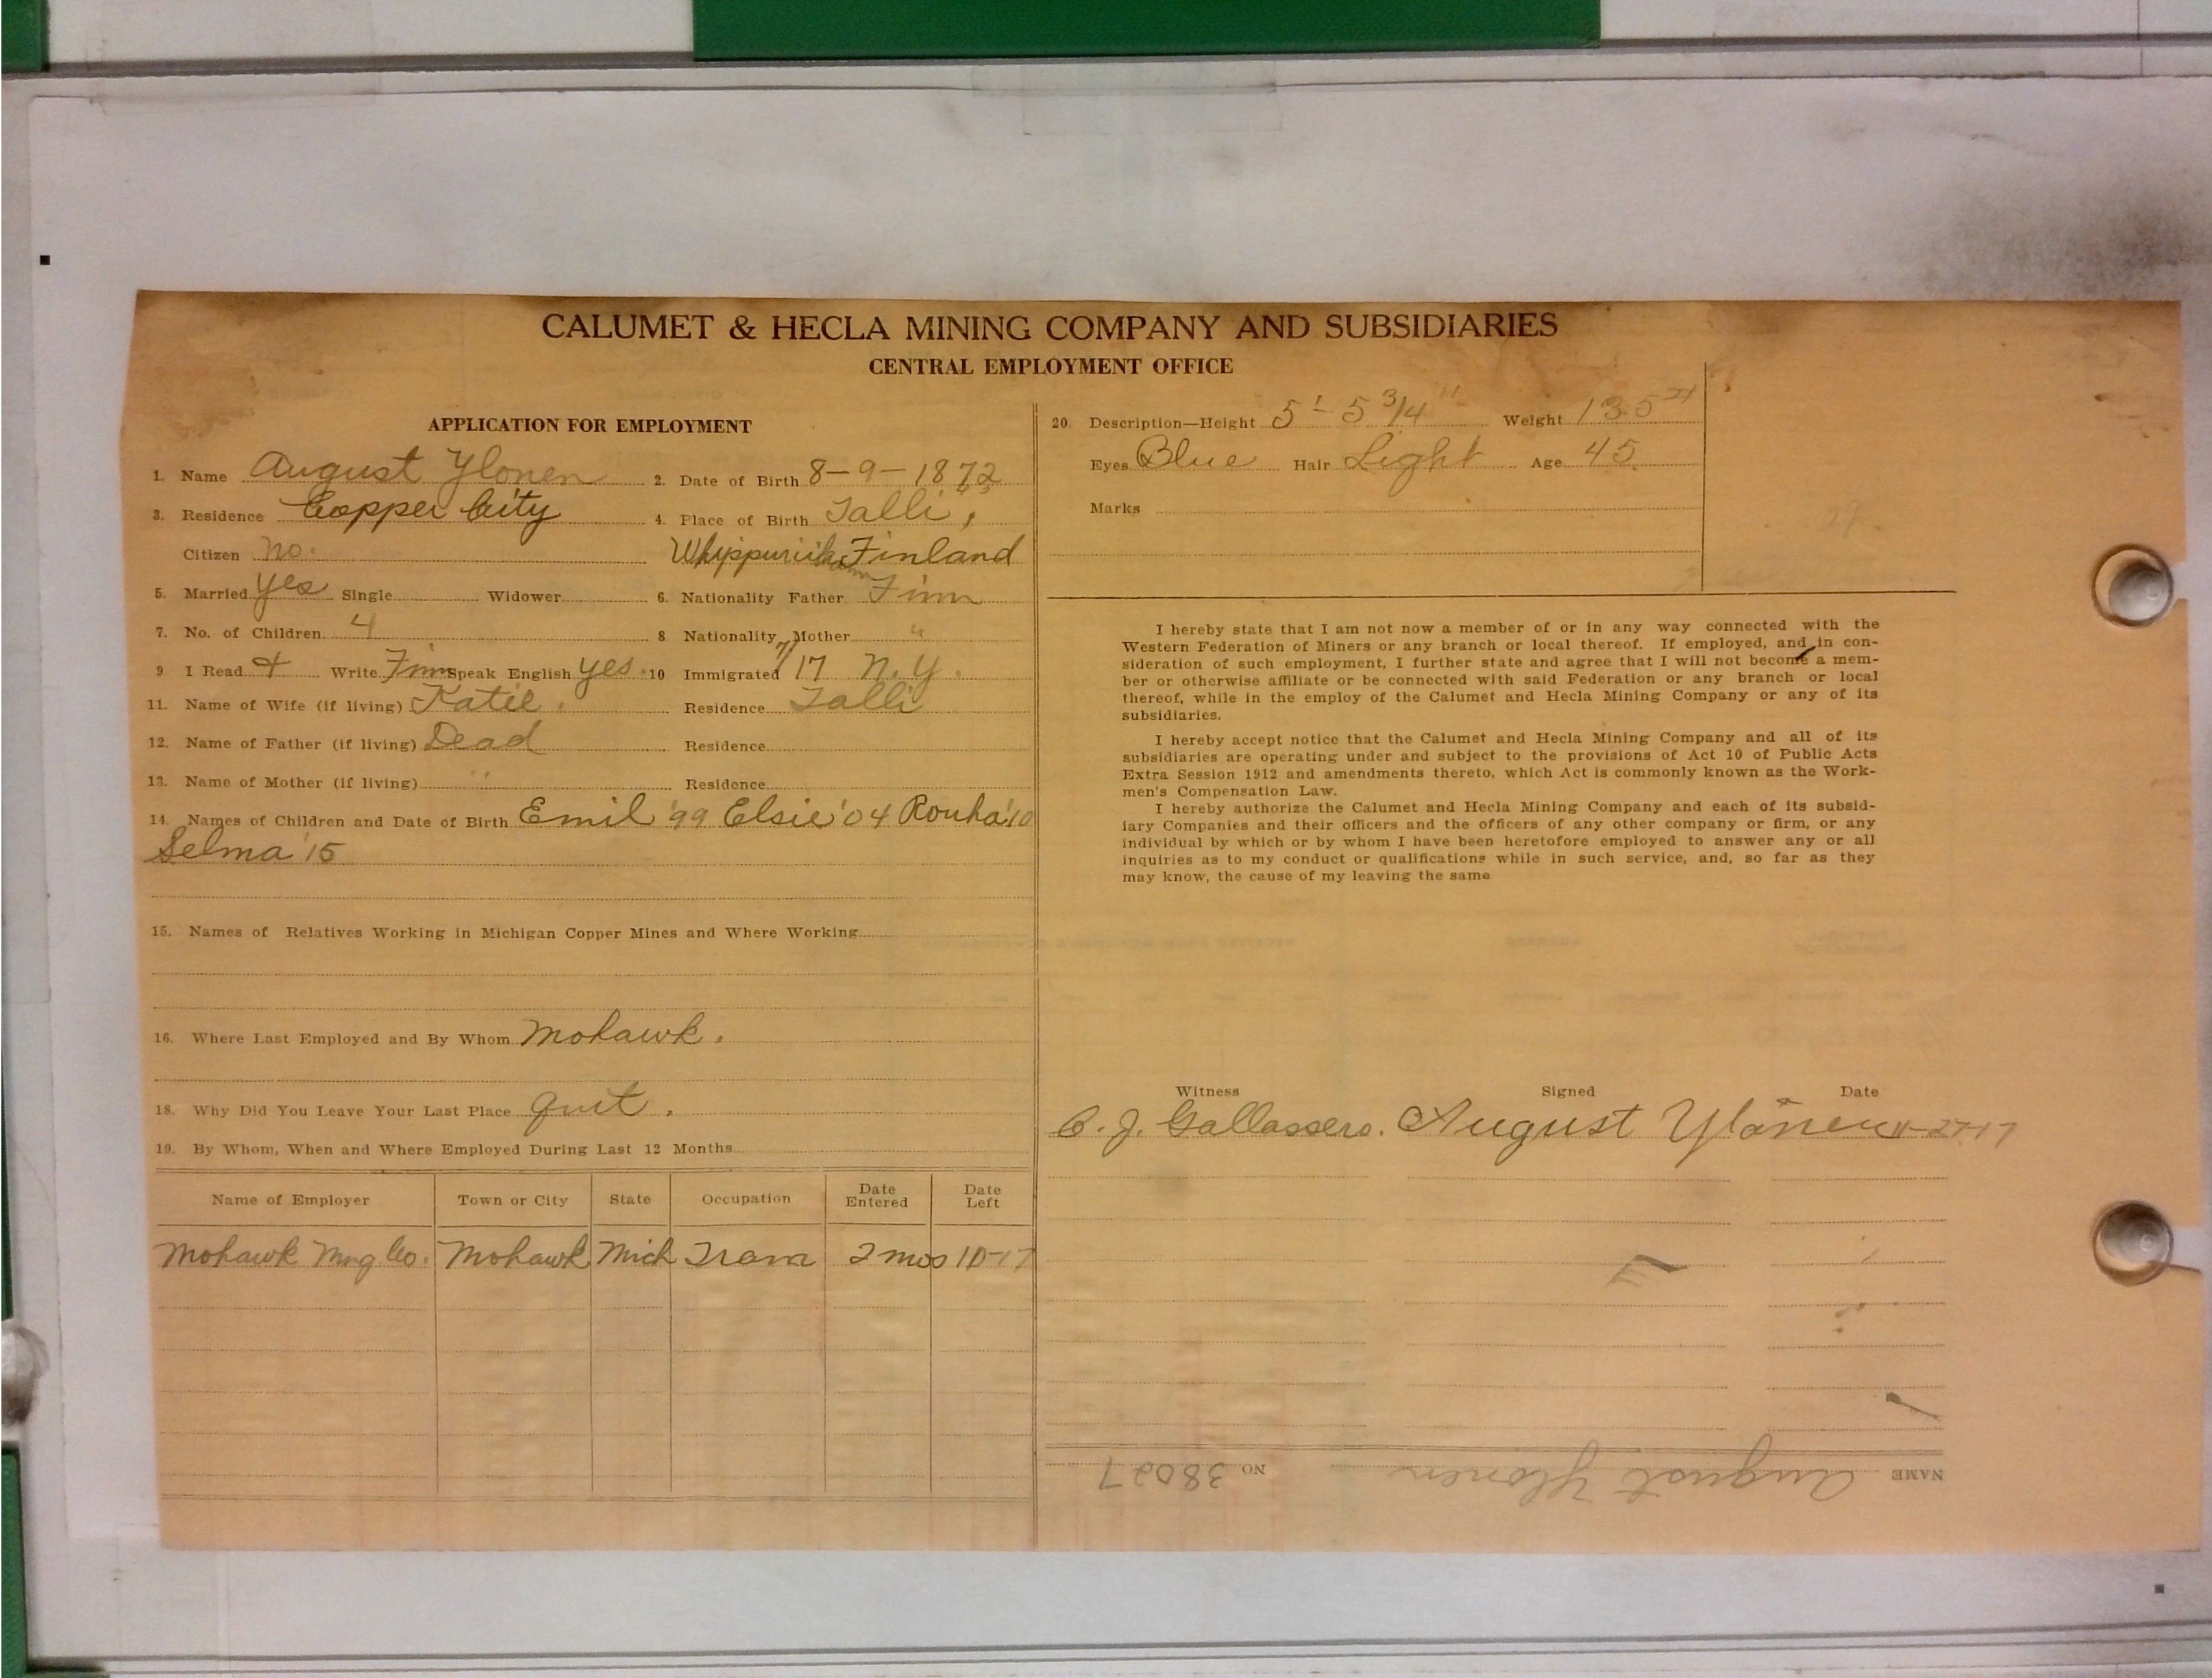 CALUMET & HECLA MINING COMPANY AND SUBSIDIARIES
CENTRAL EMPLOYMENT OFFICE
APPLICATION FOR EMPLOYMENT
1. Name August Ylonen 2. Date of Birth 8-9-1872
3. Residence Copper City 4. Place of Birth Talli,
Citizen no. Finland
5. Married yes Single Widower 6. Nationality Father Finn
7. No. of Children 4 8 Nationality Mother "
9 I Read + Write Finn Speak English yes. 10 Immigrated 7/17 N.Y.
11. Name of Wife (if living) Katie. Residence Talli
12. Name of Father (if living) Dead Residence
13. Name of Mother (if living) " Residence
14. Names of Children and Date of Birth Emil '99 Elsie '04 Rouha '10
Selma '15
15. Names of Relatives Working in Michigan Copper Mines and Where Working
16. Where Last Employed and By Whom Mohawk.
18. Why Did You Leave Your Last Place quit.
19. By Whom, When and Where Employed During Last 12 Months
Name of Employer Town or City State Occupation Date Entered Date Left
Mohawk Mng Co. Mohawk Mich Tram 2 mos 10-17
20. Description—Height 5'- 5 3/4" Weight 135
Eyes Blue Hair Light Age 45
Marks
I hereby state that I am not now a member of or in any way connected with the
Western Federation of Miners or any branch or local thereof. If employed, and in con-
sideration of such employment, I further state and agree that I will not become a mem-
ber or otherwise affiliate or be connected with said Federation or any branch or local
thereof, while in the employ of the Calumet and Hecla Mining Company or any of its
subsidiaries.
I hereby accept notice that the Calumet and Hecla Mining Company and all of its
subsidiaries are operating under and subject to the provisions of Act 10 of Public Acts
Extra Session 1912 and amendments thereto, which Act is commonly known as the Work-
men's Compensation Law.
I hereby authorize the Calumet and Hecla Mining Company and each of its subsid-
iary Companies and their officers and the officers of any other company or firm, or any
individual by which or by whom I have been heretofore employed to answer any or all
inquiries as to my conduct or qualifications while in such service, and, so far as they
may know, the cause of my leaving the same
Witness Signed Date
C. J. Gallassero. August Ylönen 11-27-17
NAME August Ylonen NO 38027